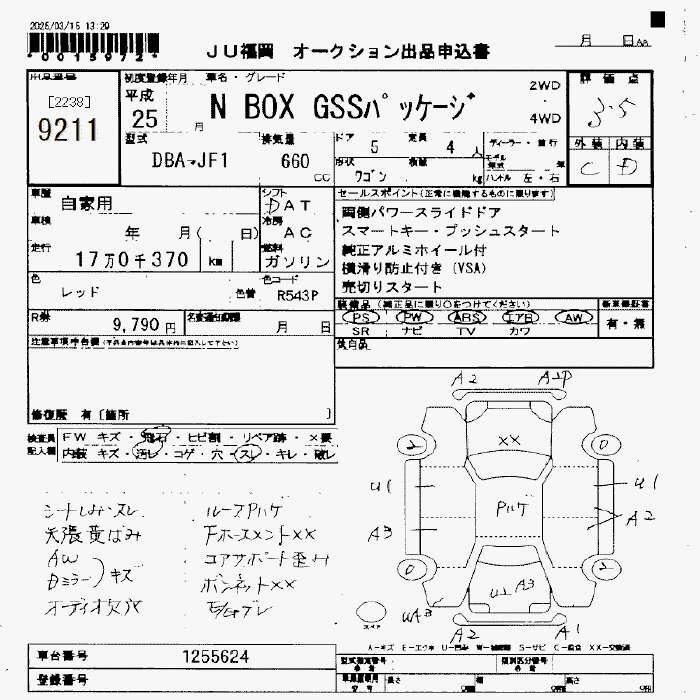 2025/03/15 13:29
*0015972*
JU福岡 オークション出品申込書
月 日 AA
出品番号
[2238]
9211
初度登録年月
平成
25 月
車名・グレード
N BOX GSSパッケージ
2WD
4WD
評価点
3.5
外装 内装
C D
型式
DBA-JF1
排気量
660 CC
ドア 5
定員 4 人
形状 ワゴン
積載 kg
ディーラー・並行
モデル年式 年
ハンドル 左・右
車歴
自家用
車検
年 月( 日)
走行
17万0千370 km
シフト
DAT
冷房
AC
燃料
ガソリン
セールスポイント(正常に機能するものに限ります)
両側パワースライドドア
スマートキー・プッシュスタート
純正アルミホイール付
横滑り防止付き(VSA)
売切りスタート
色
レッド
色替
色コード
R543P
装備品 (純正品に限り○をつけてください)
PS PW ABS エアB AW
SR ナビ TV カワ
新車保証書
有・無
R券
9,790 円
名義変更期限
月 日
欠品
注意事項申告欄
修復歴 有 [箇所 ]
検査員記入欄
FW キズ・飛石・ヒビ割・リペア跡・×要
内装 キズ・汚レ・コゲ・穴・スレ・キレ・破レ
シートしみ・スレ
天張黄ばみ
AW
Dミラー)キズ
オーディオ欠穴
ルーフPルケ
下ホースメント××
コアサポート歪み
ボンネット××
A2
××
2
0
U1
Pルケ
U1
A3
A2
0
2
U2 A3
UA3
スペア
A2
A1
A=キズ E=エクボ U=凹み W=補修跡 S=サビ C=腐食 XX=交換済
車台番号
1255624
登録番号
型式指定番号
類別区分番号
車庫証明用
長さ cm
幅 cm
高さ cm